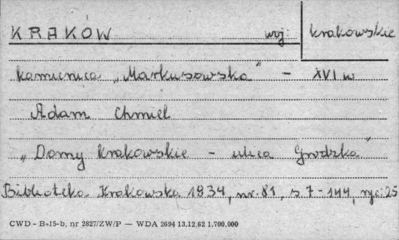 KRAKÓW woj: krakowskie
kamienica „Markusowska" - XVI w
Adam Chmiel
„Domy krakowskie - ulica Grodzka"
Biblioteka Krakowska 1934, nr. 81, s. 7-144, ryc. 25
CWD - B-15-b, nr 2827/ZW/P — WDA 2694 13.12.62 1.700.000